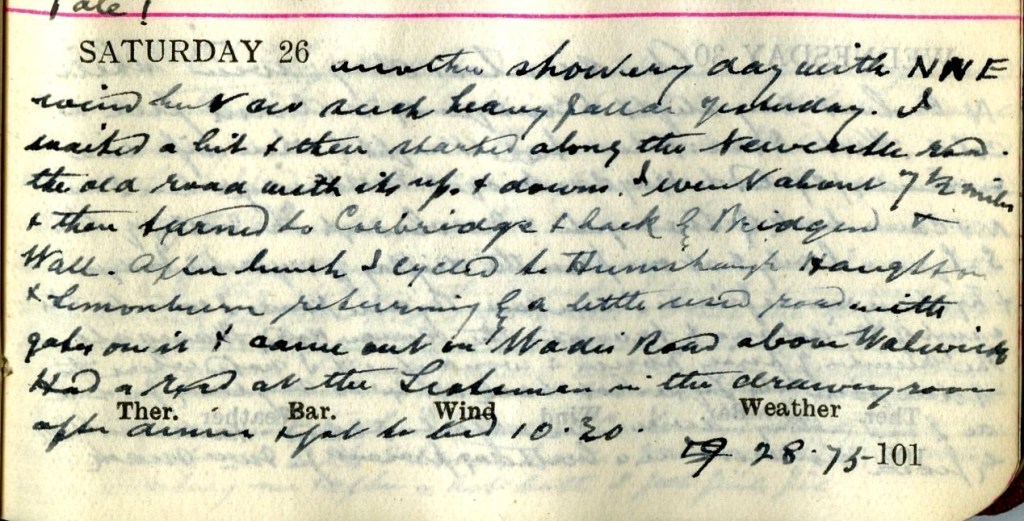 Tale!
SATURDAY 26 another showery day with NNE
wind but no such heavy fall as yesterday. I
waited a bit & then started along the Newcastle road.
the old road with its ups & downs. I went about 7½ miles
& then turned to Corbridge & back by Bridgend &
Wall. After lunch I cycled to Humshaugh Haughton
& Simonburn returning by a little used road with
gates on it & came out on Wades Road above Walwick
Had a read at the Scotsman in the drawing room
Ther. Bar. Wind Weather
after dinner & got to bed 10.30.
28.75 101